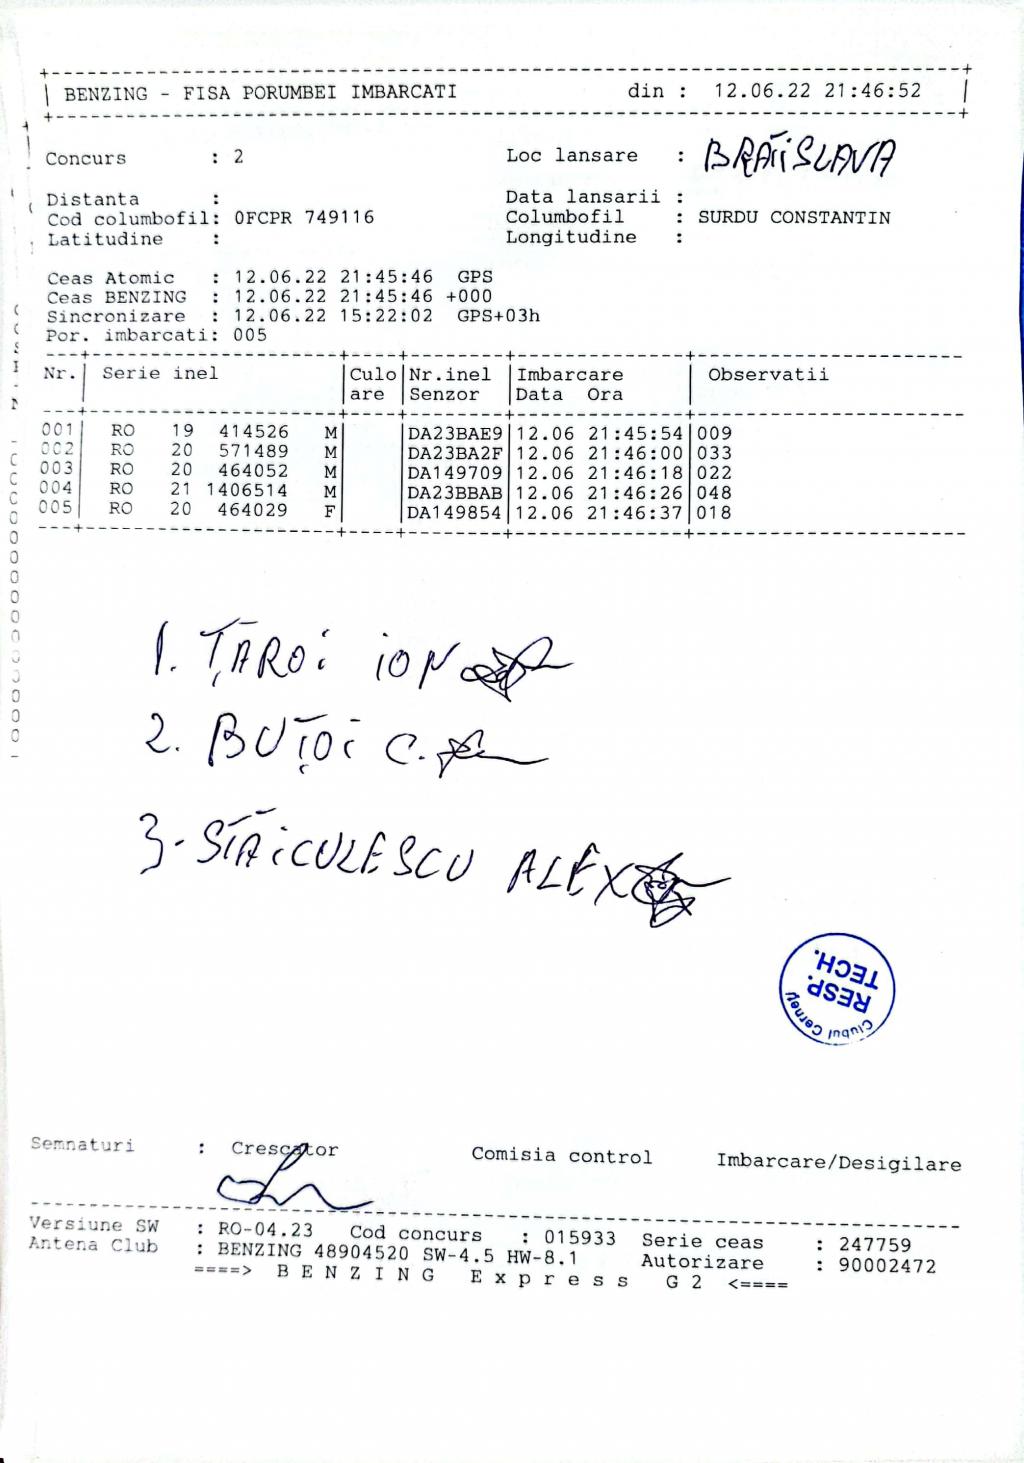 BENZING - FISA PORUMBEI IMBARCATI din : 12.06.22 21:46:52
Concurs : 2 Loc lansare : BRATISLAVA
Distanta : Data lansarii :
Cod columbofil: 0FCPR 749116 Columbofil : SURDU CONSTANTIN
Latitudine : Longitudine :
Ceas Atomic : 12.06.22 21:45:46 GPS
Ceas BENZING : 12.06.22 21:45:46 +000
Sincronizare : 12.06.22 15:22:02 GPS+03h
Por. imbarcati: 005
Nr. Serie inel Culo Nr.inel Imbarcare Observatii
are Senzor Data Ora
001 RO 19 414526 M DA23BAE9 12.06 21:45:54 009
002 RO 20 571489 M DA23BA2F 12.06 21:46:00 033
003 RO 20 464052 M DA149709 12.06 21:46:18 022
004 RO 21 1406514 M DA23BBAB 12.06 21:46:26 048
005 RO 20 464029 F DA149854 12.06 21:46:37 018
1. ȚAROI ION
2. BUȚOI C.
3- STAICULESCU ALEX
RESP.
TECH.
Clubul Cerney
Semnaturi : Crescator Comisia control Imbarcare/Desigilare
Versiune SW : RO-04.23 Cod concurs : 015933 Serie ceas : 247759
Antena Club : BENZING 48904520 SW-4.5 HW-8.1 Autorizare : 90002472
====> B E N Z I N G E x p r e s s G 2 <====